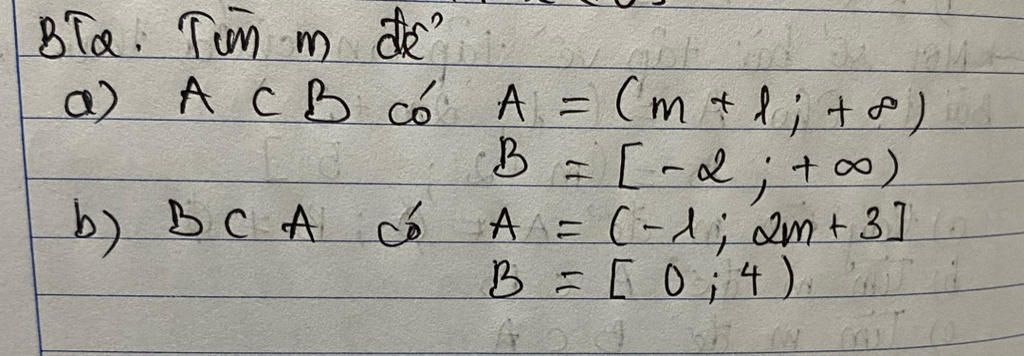 BT2. Tìm m để
a) A ⊂ B có A = (m + 1 ; + ∞)
B = [ -2 ; + ∞)
b) B ⊂ A có A = (-1 ; 2m + 3]
B = [ 0 ; 4 )